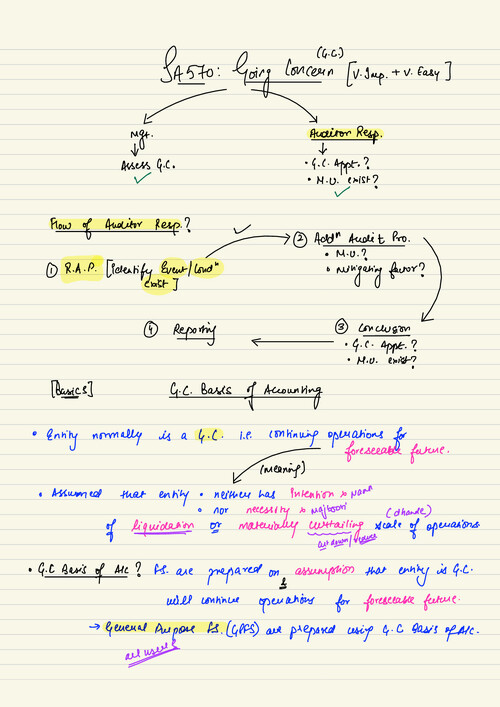 (G.C.)
SA570: Going Concern [V.Imp. + V. Easy]
Mgt. Auditor Resp.
Assess G.C. • G.C. Appt.?
• M.U. exist?
Flow of Auditor Resp.?
② Addⁿ Audit Pro.
• M.U.?
① R.A.P. [Identify Event/Condⁿ • mitigating favor?
exist]
④ Reporting ③ Conclusion
• G.C. Appt.?
• M.U. exist?
[Basics] G.C. Basis of Accounting
• Entity normally is a G.C. i.e. continuing operations for
foreseeable future.
(meaning)
• Assumed that entity • neither has Intention → Mann
• nor necessity → Majboori
(dhanda)
of liquidation or materially curtailing scale of operations
cut down/reduce
• G.C Basis of A/c? FS. are prepared on assumption that entity is G.C.
&
will continue operations for foreseeable future.
→ General Purpose FS. (GPFS) are prepared using G.C Basis of A/c.
all users